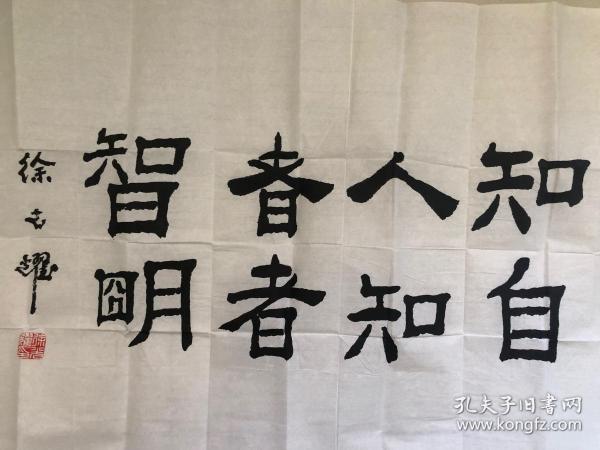 知人者智
自知者朙
徐志耀
孔夫子旧书网
www.kongfz.com